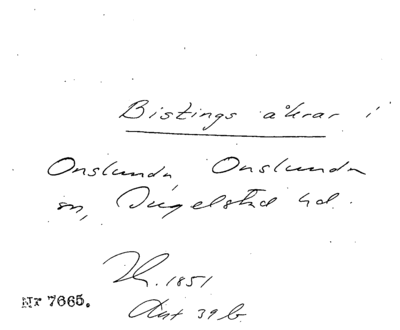 Bistings åkrar i
Onslunda, Onslunda
sn, Ingelstad hd.
Th. 1851
Ant 39 b
Nr 7665.